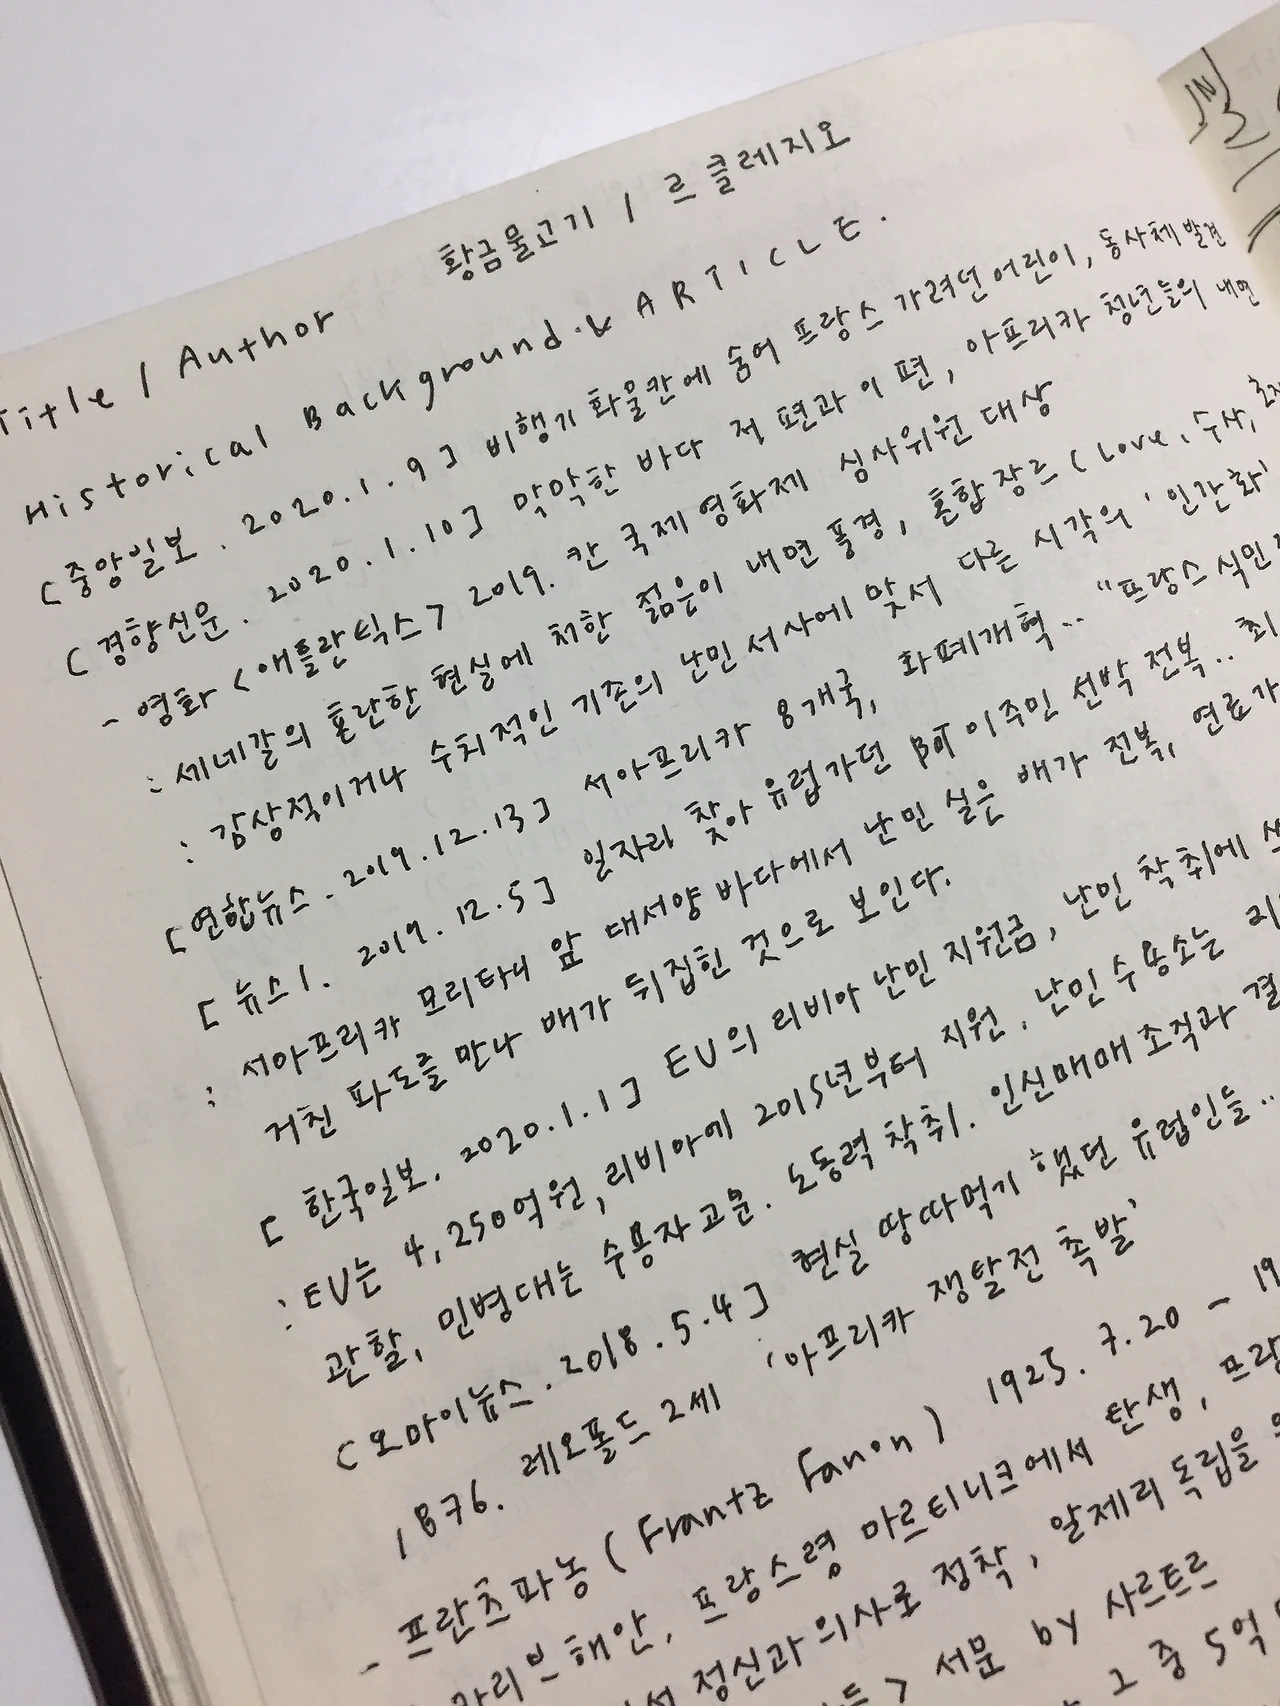 Title / Author 황금물고기 / 르 클레지오
Historical Background & ARTICLE.
[중앙일보. 2020.1.9] 비행기 화물칸에 숨어 프랑스 가려던 어린이, 동사체 발견
[경향신문. 2020.1.10] 막막한 바다 저 편과 이 편, 아프리카 청년들의 내면
- 영화 <애틀란틱스> 2019. 칸 국제 영화제 심사위원 대상
: 세네갈의 혼란한 현실에 처한 젊은이 내면 풍경, 혼합 장르 (Love, 수사,
: 감상적이거나 수치적인 기존의 난민 서사에 맞서 다른 시각의 '인간화'
[연합뉴스. 2019.12.13] 서아프리카 8개국, 화폐개혁.. "프랑스 식민
[뉴스1. 2019.12.5] 일자리 찾아 유럽가던 이주민 선박 전복.. 최
: 서아프리카 모리타니 앞 대서양 바다에서 난민 실은 배가 전복, 연료가
거친 파도를 만나 배가 뒤집힌 것으로 보인다.
[한국일보. 2020.1.1] EU의 리비아 난민 지원금, 난민 착취에
: EU는 4,250억원, 리비아에 2015년부터 지원. 난민 수용소는
관할, 민병대는 수용자 고문. 노동력 착취. 인신매매 조직과 결
[오마이뉴스. 2018.5.4] 현실 땅따먹기 했던 유럽인들..
1876. 레오폴드 2세 '아프리카 쟁탈전 촉발'
- 프란츠 파농 (Frantz Fanon) 1925.7.20 - 19
카리브 해안, 프랑스령 마르티니크에서 탄생, 프랑
정신과 의사로 정착, 알제리 독립을
> 서문 by 사르트르
그 중 5억